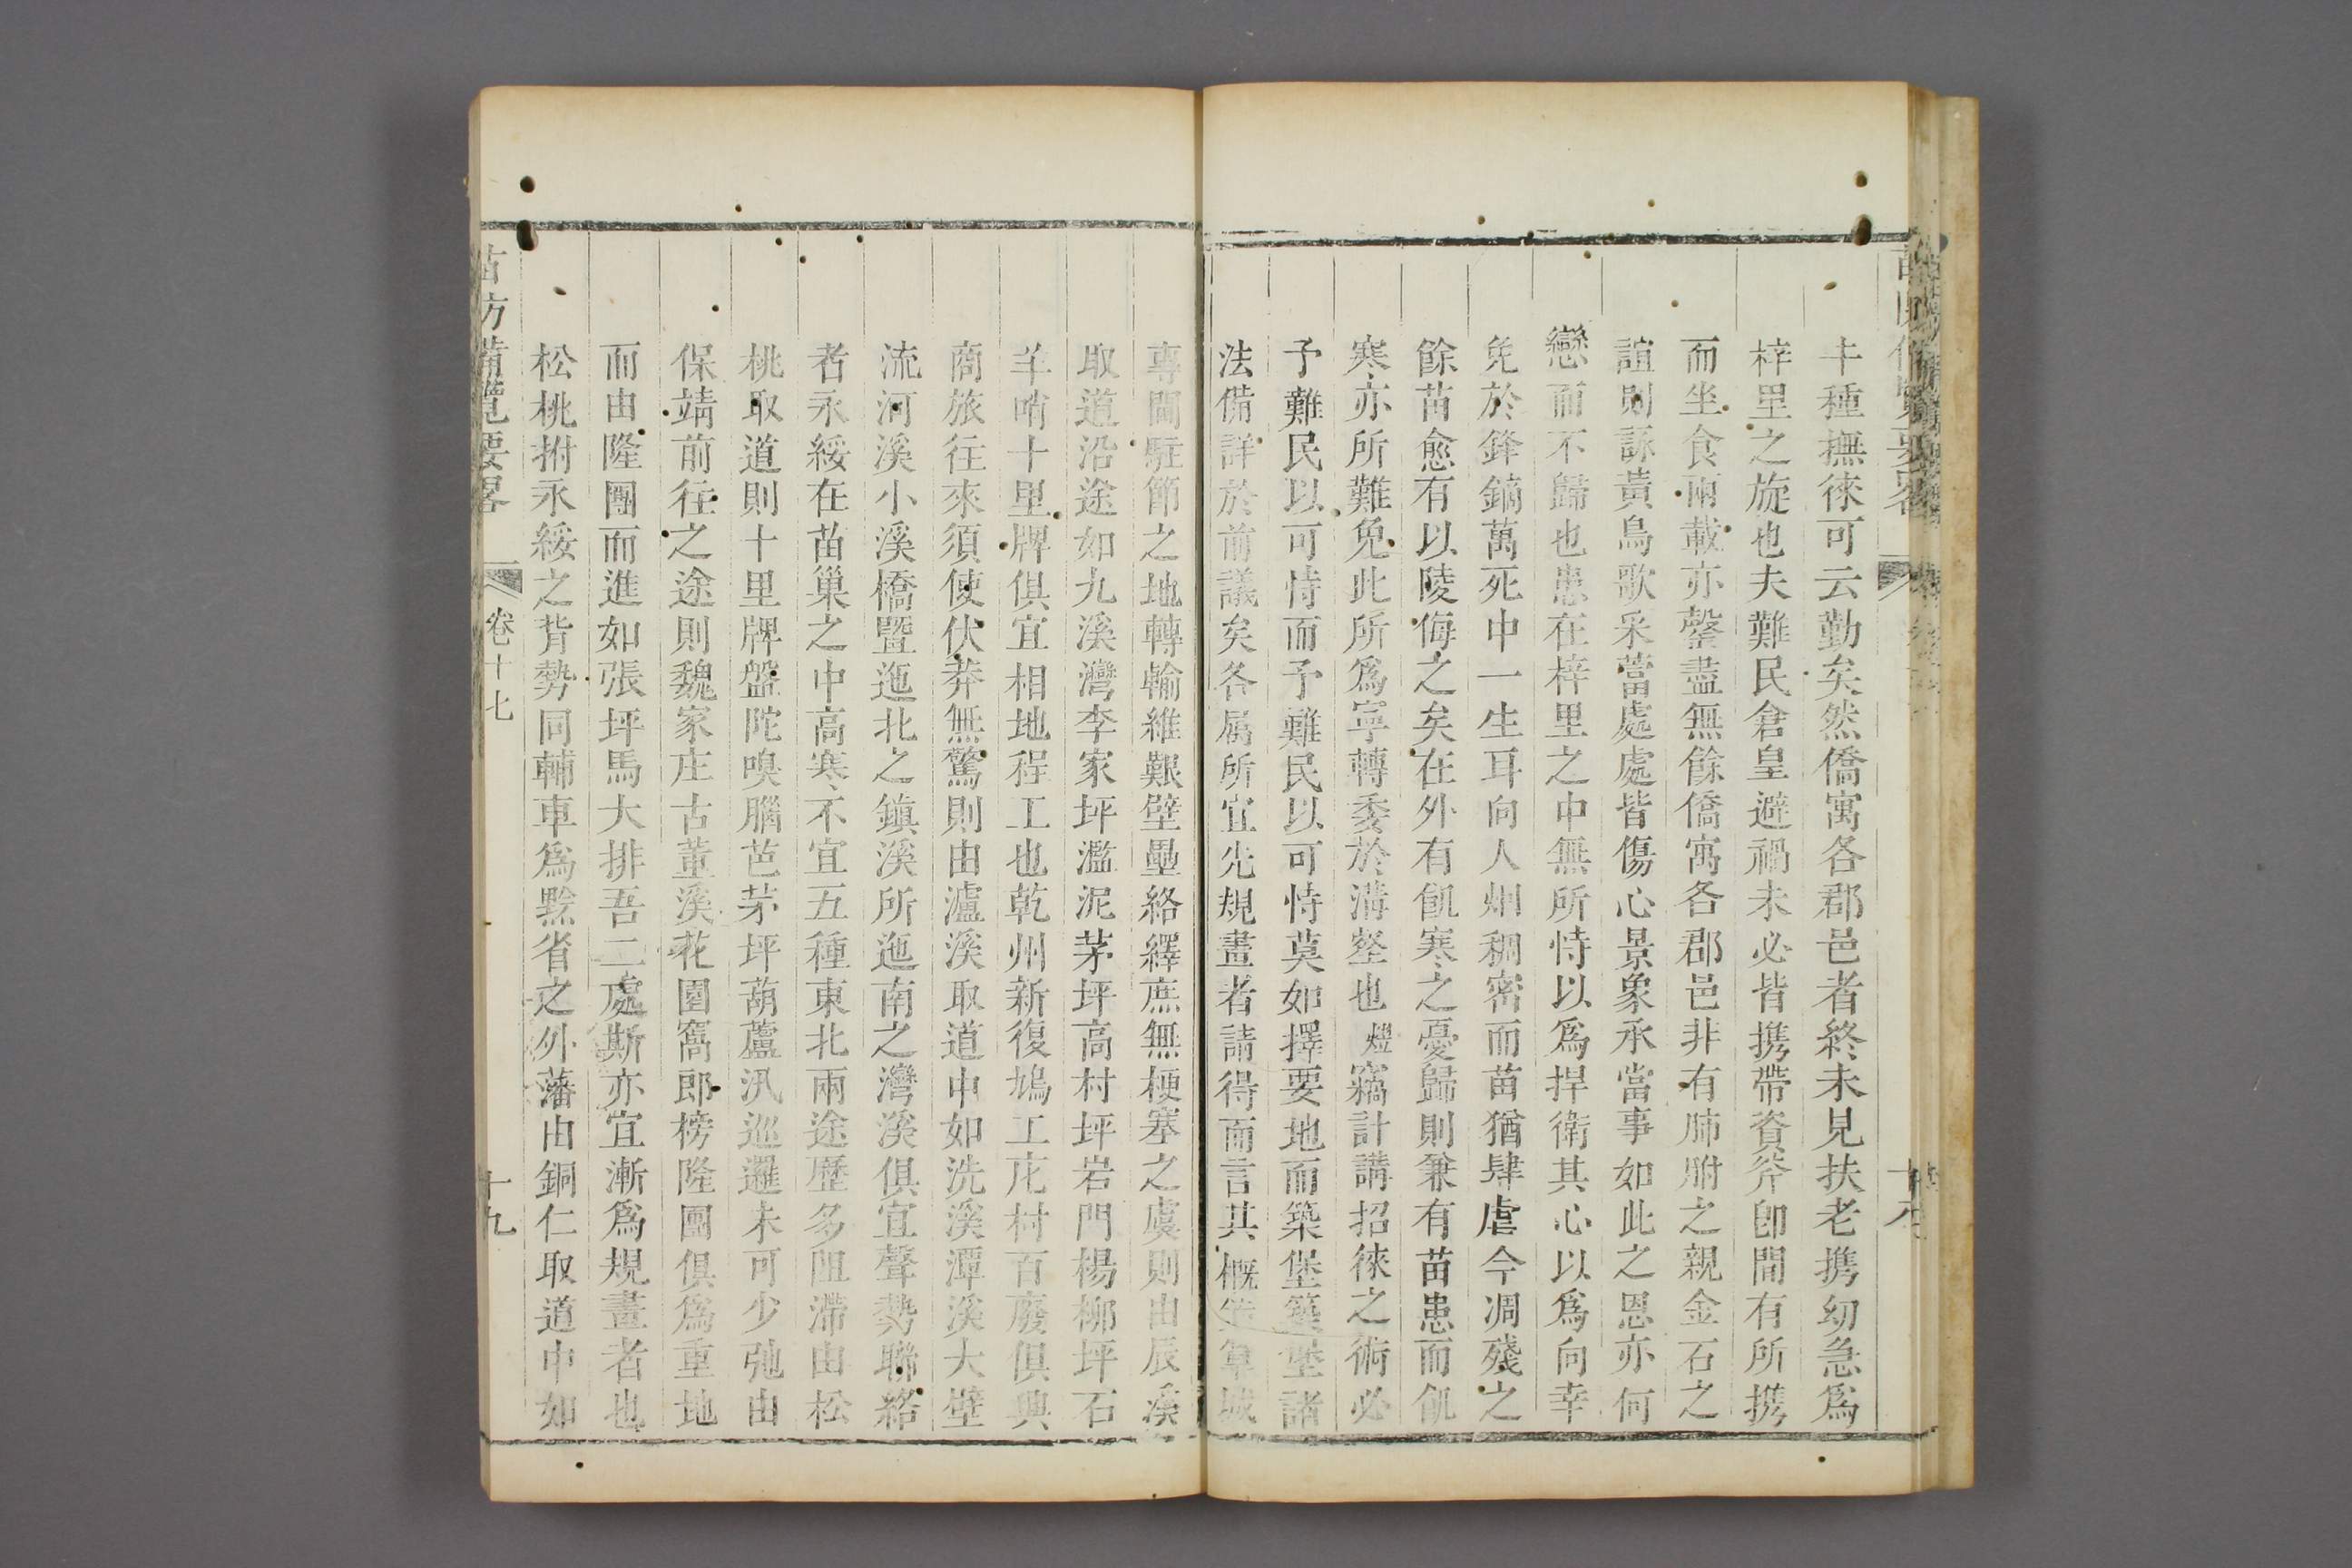 卡種撫徠可云勤矣然僑寓各郡邑者終未見扶老携幼急爲
梓里之旋也夫難民倉皇避禍未必皆携帶資斧卽間有所携
而坐食兩載亦罄盡無餘僑寓各郡邑非有肺腑之親金石之
誼則詠黃鳥歌采葍處處皆傷心景象承當事如此之恩亦何
戀而不歸也患在梓里之中無所恃以爲捍衛其心以爲向幸
免於鋒鏑萬死中一生耳向人烟稠密而苗猶肆虐今凋殘之
餘苗愈有以陵侮之矣在外有飢寒之憂歸則兼有苗患而飢
寒亦所難免此所爲寧轉委於溝壑也 竊計講招徠之術必
予難民以可恃而予難民以可恃莫如擇要地而築堡築堡諸
法備詳於前議矣各屬所宜先規畫者請得而言其概筸城
專閫駐節之地轉輸維艱壁壘絡繹庶無梗塞之虞則由辰溪
取道沿途如九溪灣李家坪濫泥茅坪高村坪岩門楊柳坪石
羊哨十里牌俱宜相地程工也乾州新復鳩工庀村百廢俱興
商旅往來須使伏莽無驚則由瀘溪取道中如洗溪潭溪大壁
流河溪小溪橋暨迤北之鎮溪所迤南之灣溪俱宜聲勢聯絡
者永綏在苗巢之中高寒不宜五種東北兩途歷多阻滯由松
桃取道則十里牌盤陀嗅腦芭茅坪葫蘆汛巡邏未可少弛由
保靖前往之途則魏家庄古董溪花園窩郎榜隆團俱爲重地
而由隆團而進如張坪馬大排吾二處斯亦宜漸爲規畫者也
松桃拊永綏之背勢同輔車爲黔省之外藩由銅仁取道中如
苗防備覽要畧 卷十七 十九